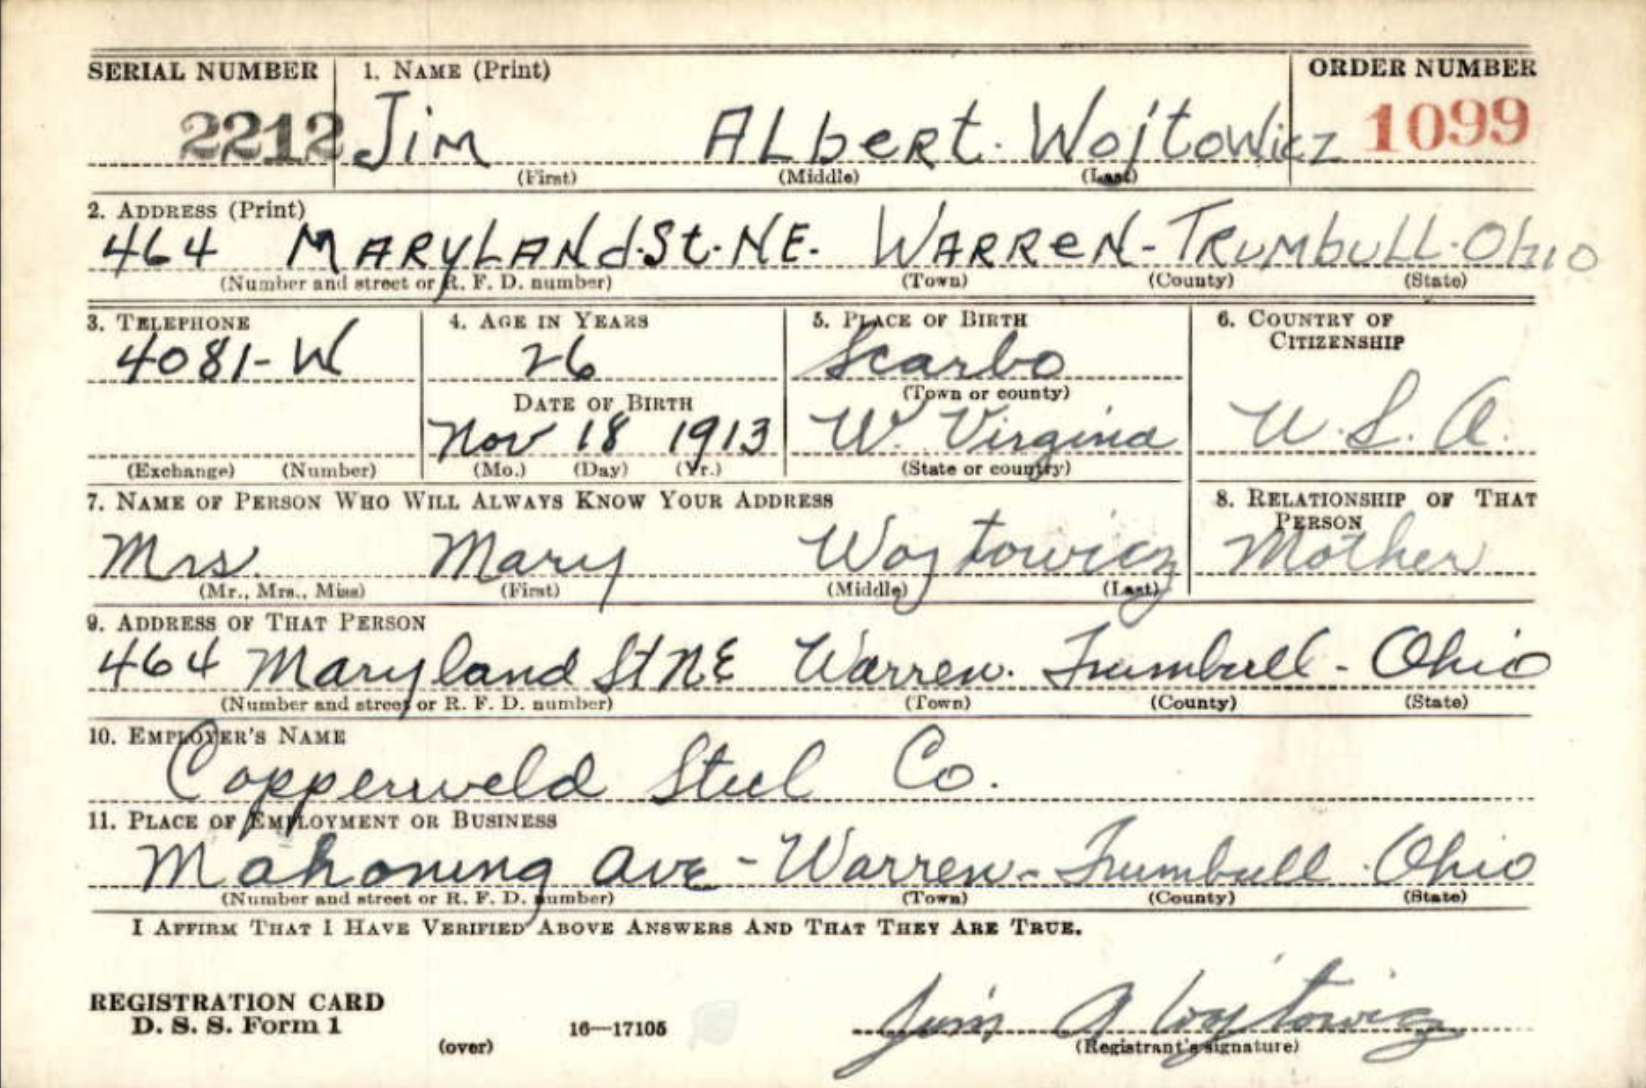 SERIAL NUMBER 1. NAME (Print) ORDER NUMBER
2212 Jim ALbert. Wojtowicz 1099
(First) (Middle) (Last)
2. ADDRESS (Print)
464 MARYLANd.St.NE. WARReN-TRUMbULL.Ohio
(Number and street or R. F. D. number) (Town) (County) (State)
3. TELEPHONE 4. AGE IN YEARS 5. PLACE OF BIRTH 6. COUNTRY OF CITIZENSHIP
4081-W 26 Scarbo
(Town or county)
DATE OF BIRTH
Nov 18 1913 W. Virgina U.S.A.
(Exchange) (Number) (Mo.) (Day) (Yr.) (State or country)
7. NAME OF PERSON WHO WILL ALWAYS KNOW YOUR ADDRESS 8. RELATIONSHIP OF THAT PERSON
Mrs. Mary Wojtowicz Mother
(Mr., Mrs., Miss) (First) (Middle) (Last)
9. ADDRESS OF THAT PERSON
464 Maryland St NE Warren. Trumbull - Ohio
(Number and street or R. F. D. number) (Town) (County) (State)
10. EMPLOYER'S NAME
Copperweld Steel Co.
11. PLACE OF EMPLOYMENT OR BUSINESS
Mahoning Ave - Warren - Trumbull . Ohio
(Number and street or R. F. D. number) (Town) (County) (State)
I AFFIRM THAT I HAVE VERIFIED ABOVE ANSWERS AND THAT THEY ARE TRUE.
REGISTRATION CARD
D. S. S. Form 1 Jim A Wojtowicz
(over) 16—17105 (Registrant's signature)